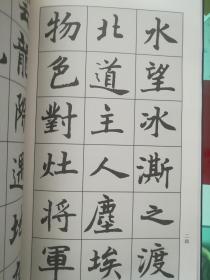 水望冰澌之渡
北道主人塵埃
物色對灶將軍
龍降遇
二四